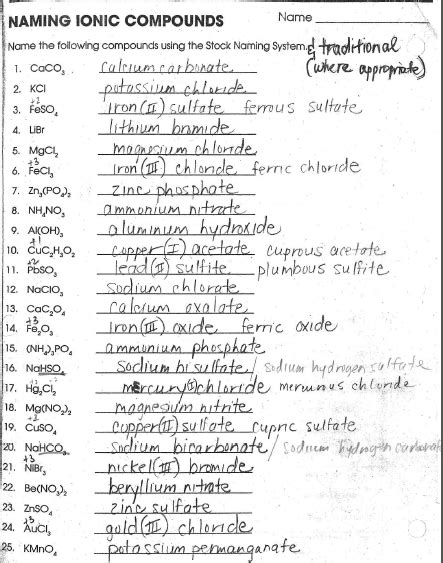 NAMING IONIC COMPOUNDS Name
Name the following compounds using the Stock Naming System. & traditional
(where appropriate)
1. CaCO₃ calcium carbonate
2. KCl potassium chloride
3. FeSO₄ +2 iron (II) sulfate ferrous sulfate
4. LiBr lithium bromide
5. MgCl₂ magnesium chloride
6. FeCl₃ +3 iron (III) chloride ferric chloride
7. Zn₃(PO₄)₂ zinc phosphate
8. NH₄NO₃ ammonium nitrate
9. Al(OH)₃ aluminum hydroxide
10. CuC₂H₃O₂ +1 copper (I) acetate cuprous acetate
11. PbSO₃ +2 lead (II) sulfite plumbous sulfite
12. NaClO₃ sodium chlorate
13. CaC₂O₄ calcium oxalate
14. Fe₂O₃ +3 iron (III) oxide ferric oxide
15. (NH₄)₃PO₄ ammonium phosphate
16. NaHSO₄ Sodium bisulfate / sodium hydrogen sulfate
17. Hg₂Cl₂ +1 mercury (I) chloride mercurous chloride
18. Mg(NO₂)₂ magnesium nitrite
19. CuSO₄ +2 copper (II) sulfate cupric sulfate
20. NaHCO₃ Sodium bicarbonate / Sodium hydrogen carbonate
21. NiBr₃ +3 nickel (III) bromide
22. Be(NO₃)₂ beryllium nitrate
23. ZnSO₄ zinc sulfate
24. AuCl₃ +3 gold (III) chloride
25. KMnO₄ potassium permanganate